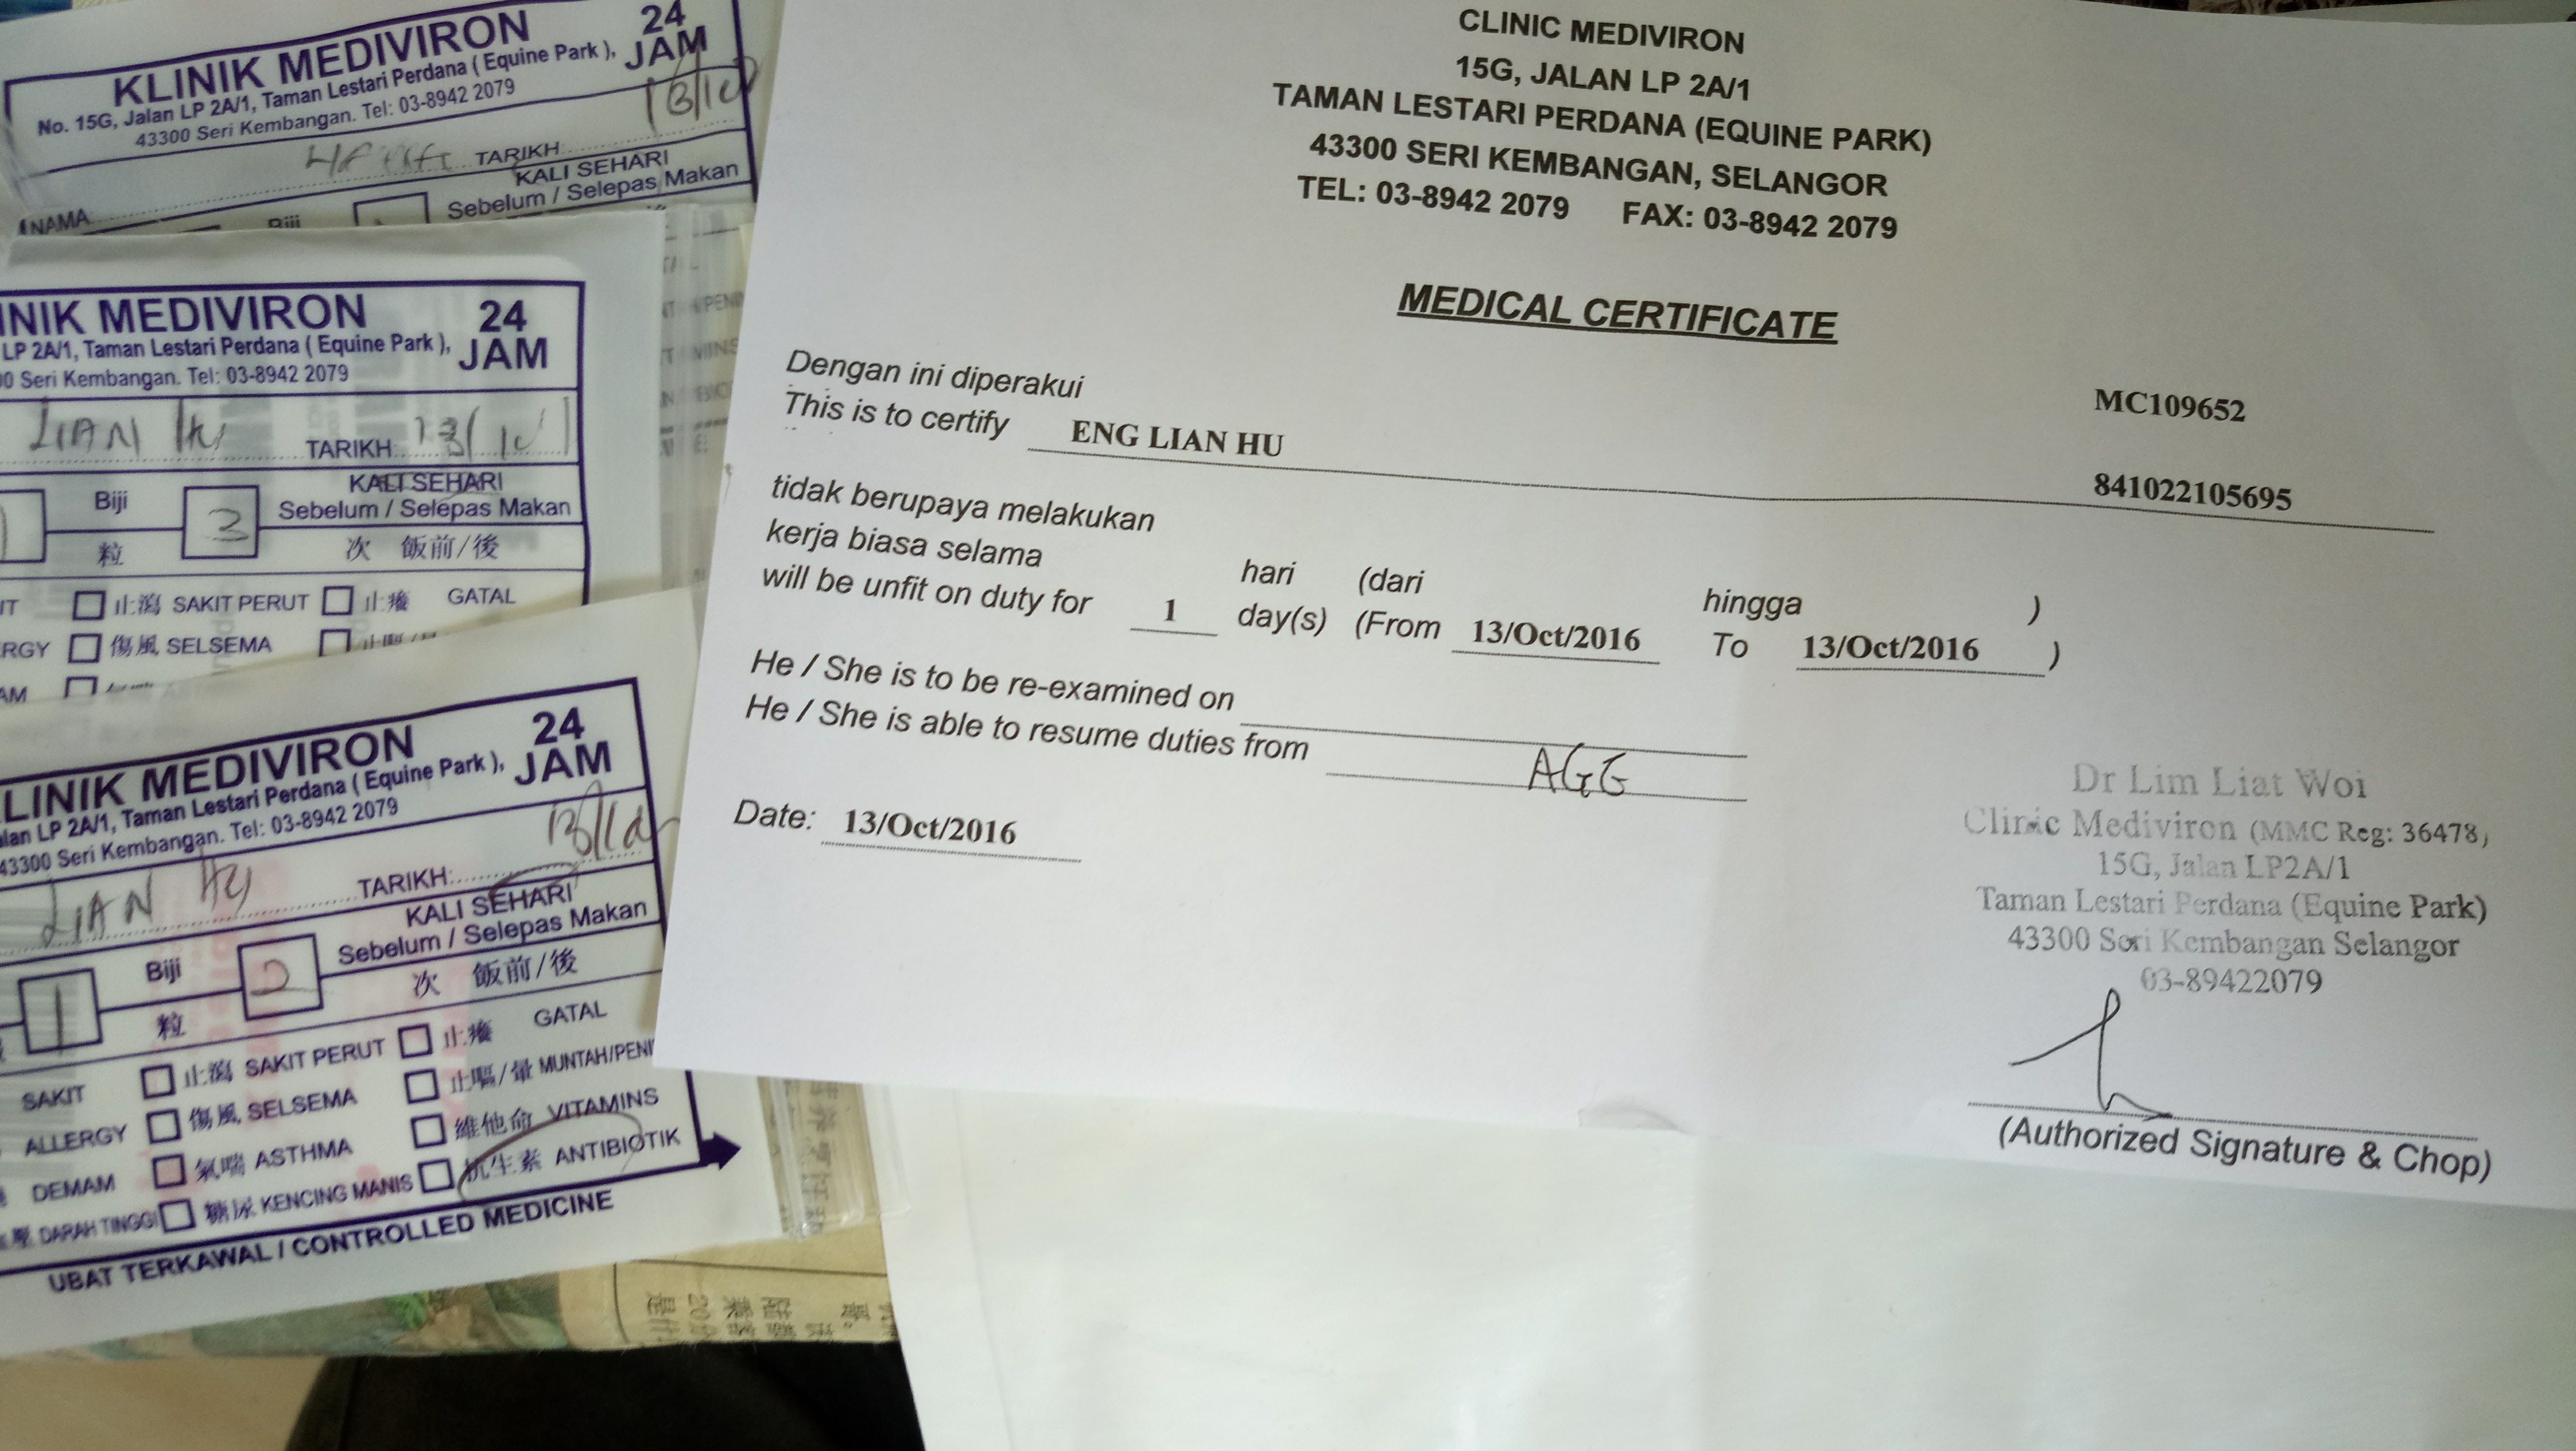 KLINIK MEDIVIRON
24
JAM
No. 15G, Jalan LP 2A/1, Taman Lestari Perdana ( Equine Park ),
43300 Seri Kembangan. Tel: 03-8942 2079
TARIKH
NAMA
KALI SEHARI
Biji
Sebelum / Selepas Makan
INIK MEDIVIRON
24
JAM
LP 2A/1, Taman Lestari Perdana ( Equine Park ),
00 Seri Kembangan. Tel: 03-8942 2079
LIAN HU TARIKH: 13/10
KALI SEHARI
Biji 3 Sebelum / Selepas Makan
粒 次 飯前/後
IT 止瀉 SAKIT PERUT 止癢 GATAL
RGY 傷風 SELSEMA
AM
LINIK MEDIVIRON
24
JAM
alan LP 2A/1, Taman Lestari Perdana ( Equine Park ),
43300 Seri Kembangan. Tel: 03-8942 2079
LIAN HU TARIKH:
KALI SEHARI
1 Biji 2 Sebelum / Selepas Makan
粒 次 飯前/後
SAKIT 止瀉 SAKIT PERUT 止癢 GATAL
ALLERGY 傷風 SELSEMA 止嘔/暈 MUNTAH/PENI
DEMAM 氣喘 ASTHMA 維他命 VITAMINS
壓 DARAH TINGGI 糖尿 KENCING MANIS 抗生素 ANTIBIOTIK
UBAT TERKAWAL / CONTROLLED MEDICINE
CLINIC MEDIVIRON
15G, JALAN LP 2A/1
TAMAN LESTARI PERDANA (EQUINE PARK)
43300 SERI KEMBANGAN, SELANGOR
TEL: 03-8942 2079 FAX: 03-8942 2079
MEDICAL CERTIFICATE
MC109652
Dengan ini diperakui
This is to certify ENG LIAN HU 841022105695
tidak berupaya melakukan
kerja biasa selama hari (dari hingga )
will be unfit on duty for 1 day(s) (From 13/Oct/2016 To 13/Oct/2016 )
He / She is to be re-examined on
He / She is able to resume duties from
AGG
Date: 13/Oct/2016
Dr Lim Liat Woi
Clinic Mediviron (MMC Reg: 36478)
15G, Jalan LP2A/1
Taman Lestari Perdana (Equine Park)
43300 Seri Kembangan Selangor
03-89422079
(Authorized Signature & Chop)